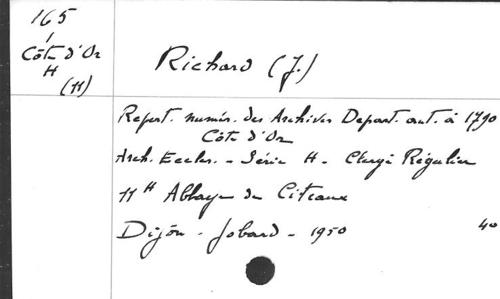 165
1
Côte d'Or
H
(11)
Richard (J.)
Repert. numér. des Archives Depart. ant. à 1790
Côte d'Or
Arch. Eccles. - Série H - Clergé Régulier
11 H Abbaye de Citeaux
Dijon - Jobard - 1950
40